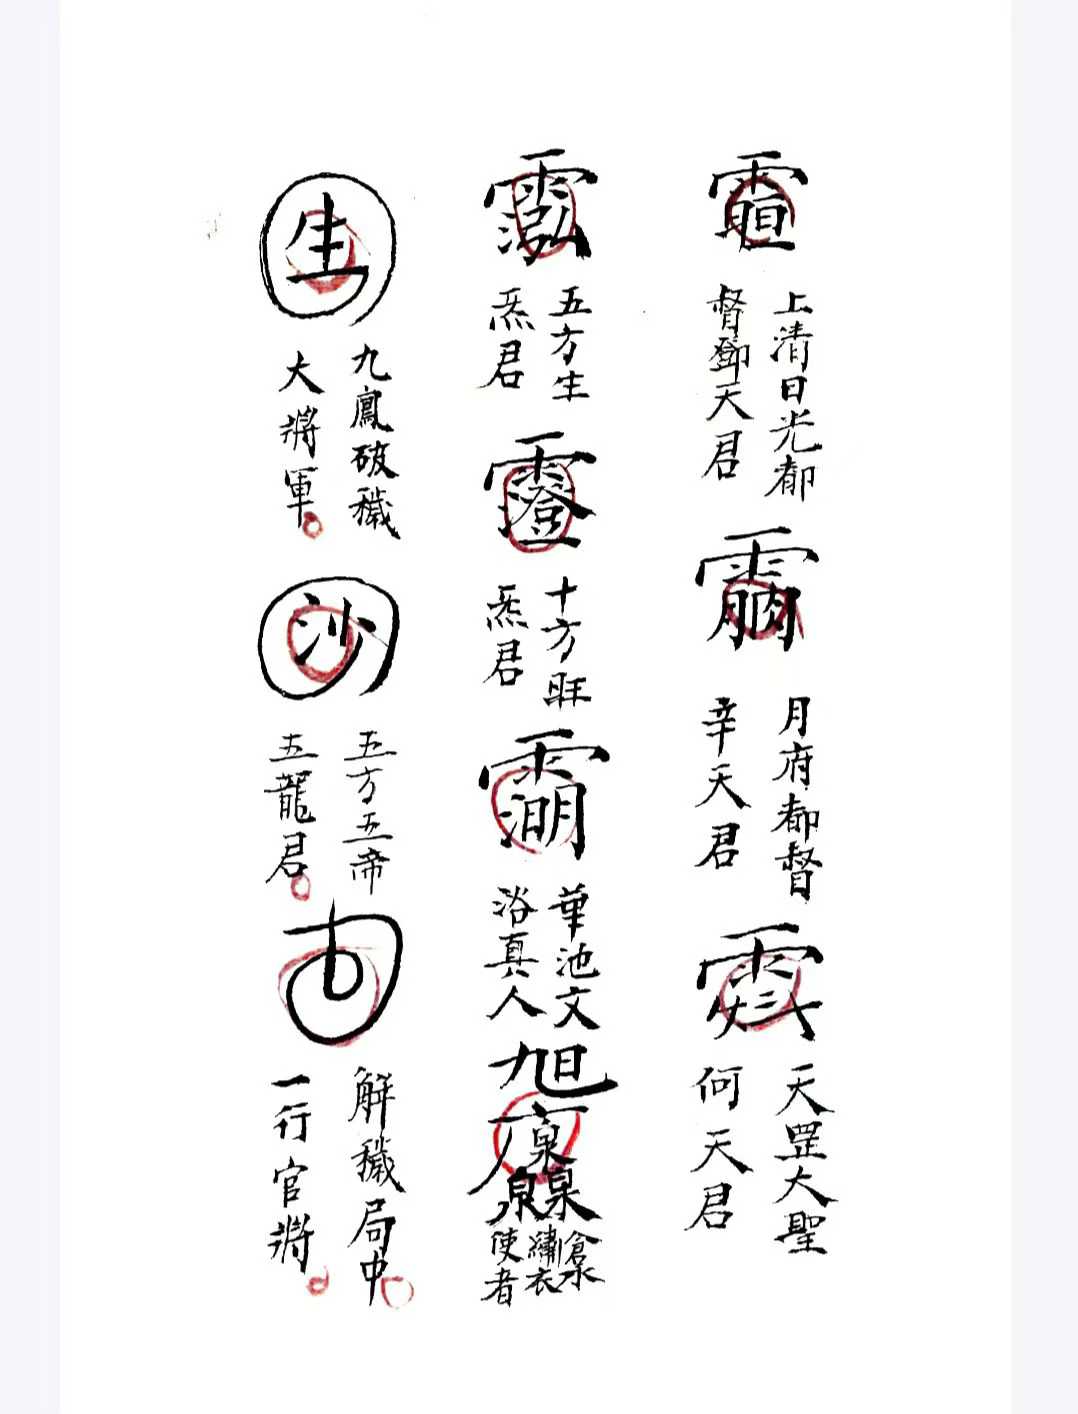 上清日光都
督鄧天君
月府都督
辛天君
天罡大聖
何天君
五方生
炁君
十方旺
炁君
華池文
浴真人
旭
倉水
繡衣
使者
生
九鳳破穢
大將軍
沙
五方五帝
五龍君
解穢局中
一行官將